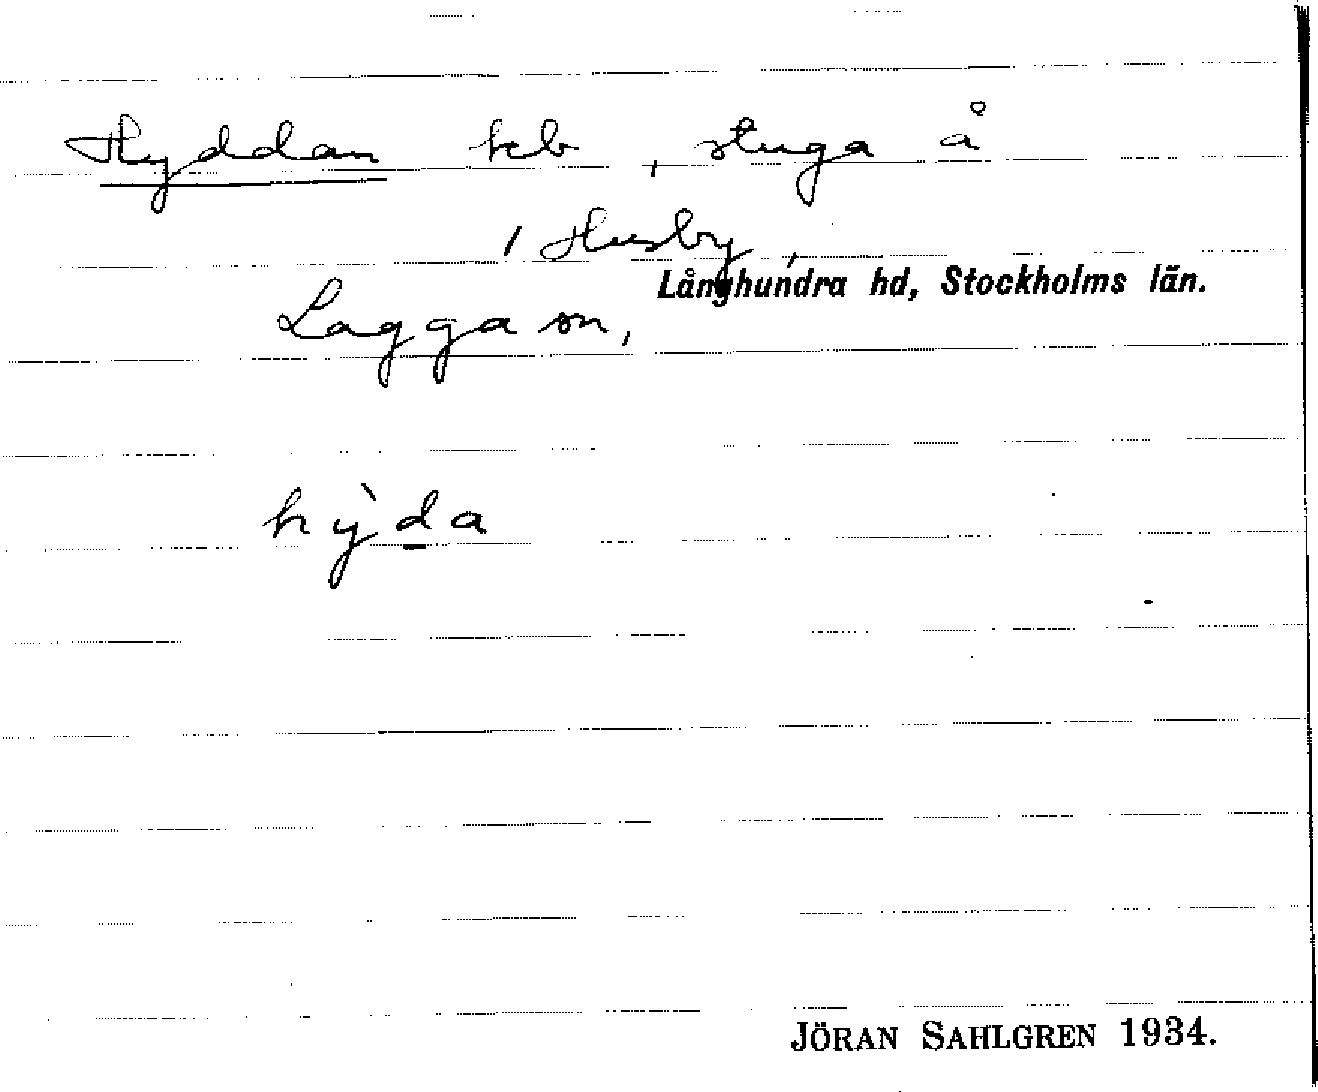 Hyddan beb, stuga å
Husby,
Långhundra hd, Stockholms län.
Lagga sn,
hỳda
JÖRAN SAHLGREN 1934.